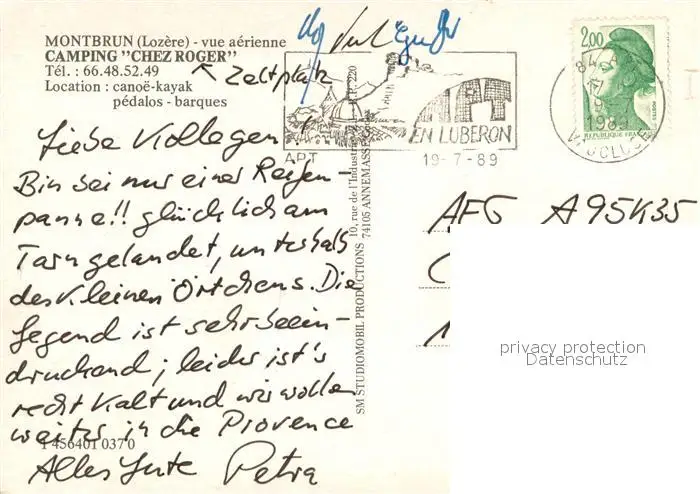 MONTBRUN (Lozère) - vue aérienne
CAMPING "CHEZ ROGER"
Tél. : 66.48.52.49
Location : canoë-kayak
pédalos - barques
Zeltplatz
Liebe Kollegen!
Bin bei nur einer Reifen-
panne!! glücklich am
Tarn gelandet, unterhalb
des kleinen Örtchens. Die
Gegend ist sehr beein-
druckend; leider ist's
recht kalt und wir wollen
weiter in die Provence
Alles Gute Petra
1 456401 0370
SM STUDIOMOBIL PRODUCTIONS
10, rue de l'Industrie
74105 ANNEMASSE
B.P. 220
APT
EN LUBERON
19-7-89
2,00
POSTES
REPUBLIQUE FRANÇAISE
84 A
19
1989
VAUCLUSE
AFG A95K35
privacy protection
Datenschutz